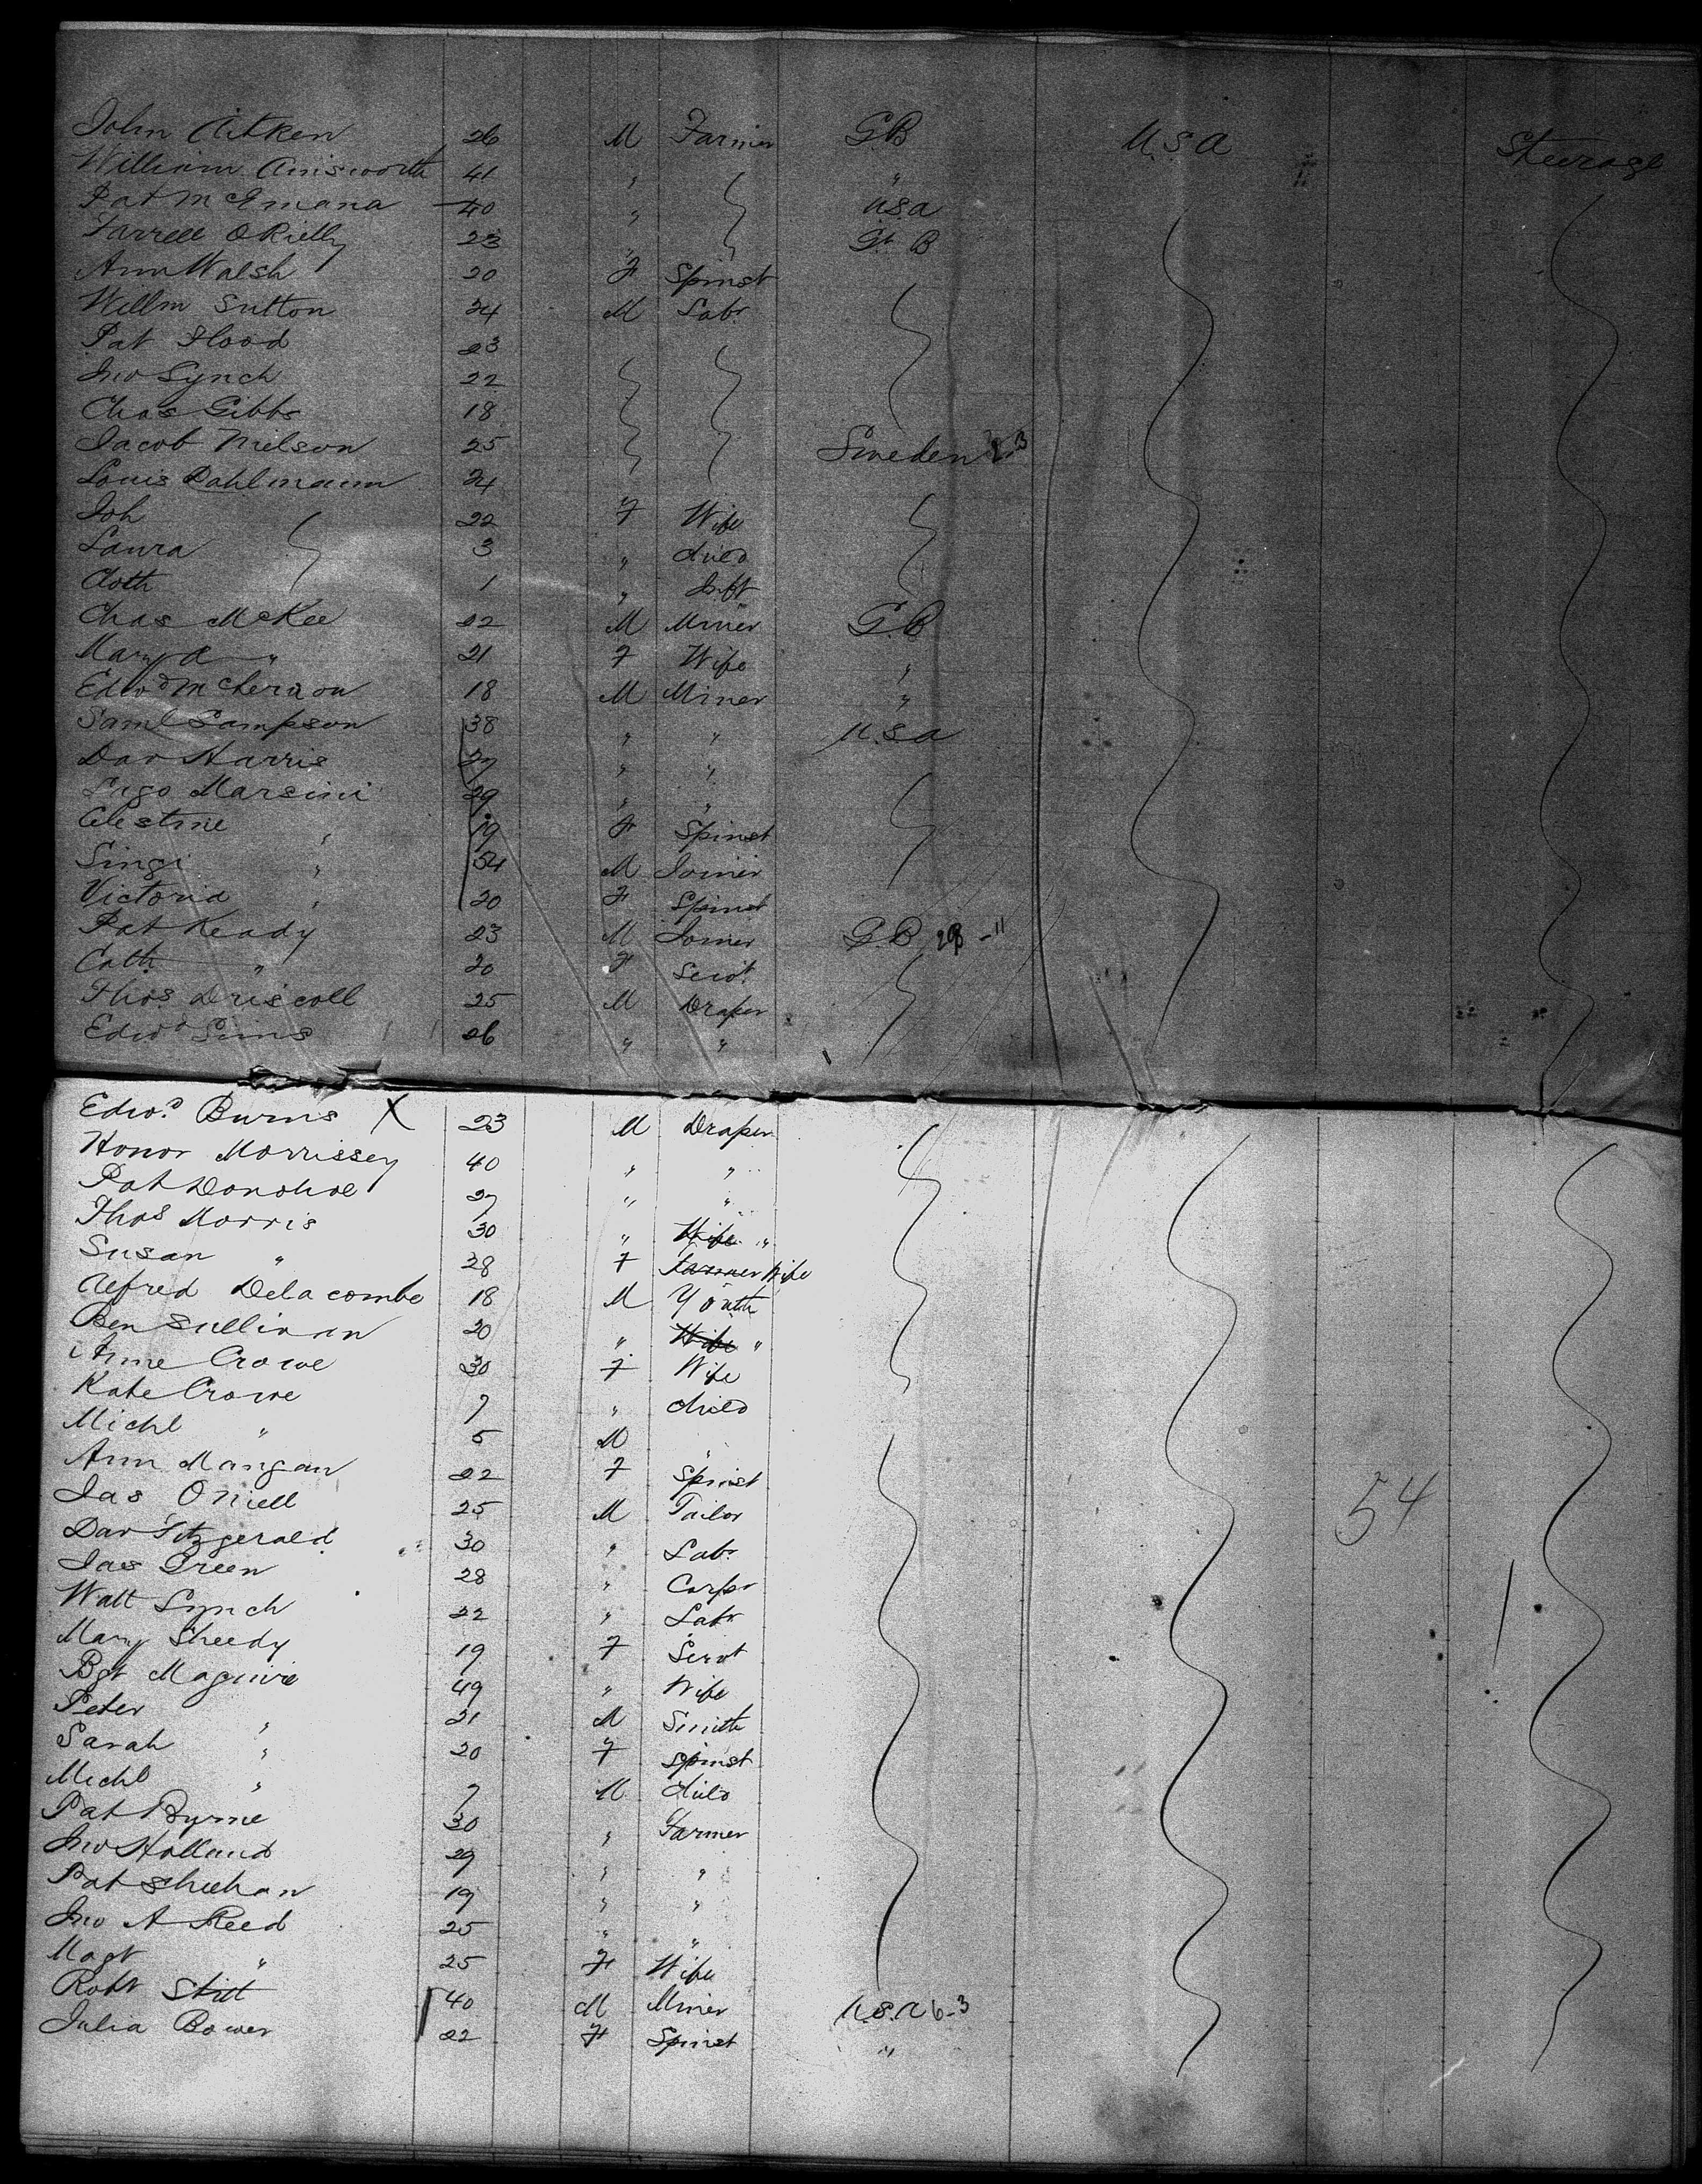 John Aitken 26 M Farmer GB U.S.A Steerage
William Ainsworth 41 " "
Pat McEmana 40 " USA
Farrell OReilly 23 " Gt B
Ann Walsh 20 F Spinst
Willm Sutton 24 M Labr
Pat Flood 23
Jno Lynch 22
Chas Gibbs 18
Jacob Nielson 25 Sweden
Louis Dahlmann 24
Joh 22 F Wife
Laura 3 " Child
Cloth 1 " Inft
Chas McKee 22 M Miner G.B
Mary A " 21 F Wife "
Edwd McChernon 18 M Miner "
Saml Sampson 38 " " U.S.A
Dav Harris 27 " "
Lugo Marsini 29 " "
Celestine " 19 F Spinst
Singi " 54 M Joiner
Victoria " 20 F Spinst
Pat Keady 23 M Joiner G.B 28 - 11
Cath " 20 F Servt
Thos Driscoll 25 M Draper
Edwd Sims 26 " "
Edwd Burns X 23 M Draper
Honor Morrissey 40 " "
Pat Donohoe 27 " "
Thos Morris 30 " Wife "
Susan " 28 F Farmer Wife
Alfred Delacombe 18 M Youth
Ben Sullivan 20 " Wife "
Anne Crowe 30 F Wife
Kate Crowe 7 " Child
Michl " 5 M "
Ann Mangan 22 F Spinst
Jas ONiell 25 M Tailor 54
Dav Fitzgerald 30 " Labr
Jas Green 28 " Carpr
Walt Lynch 22 " Labr
Mary Sheedy 19 F Servt
Bgt Maguire 49 " Wife
Peter " 21 M Smith
Sarah " 20 F Spinst
Michl " 7 M Child
Pat Byrne 30 " Farmer
Jno Holland 29 " "
Pat Sheehan 19 " "
Jno A Reed 25 " "
Magt " 25 F Wife
Robt Stitt 40 M Miner U.S.A 6-3
Julia Bower 22 F Spinst "